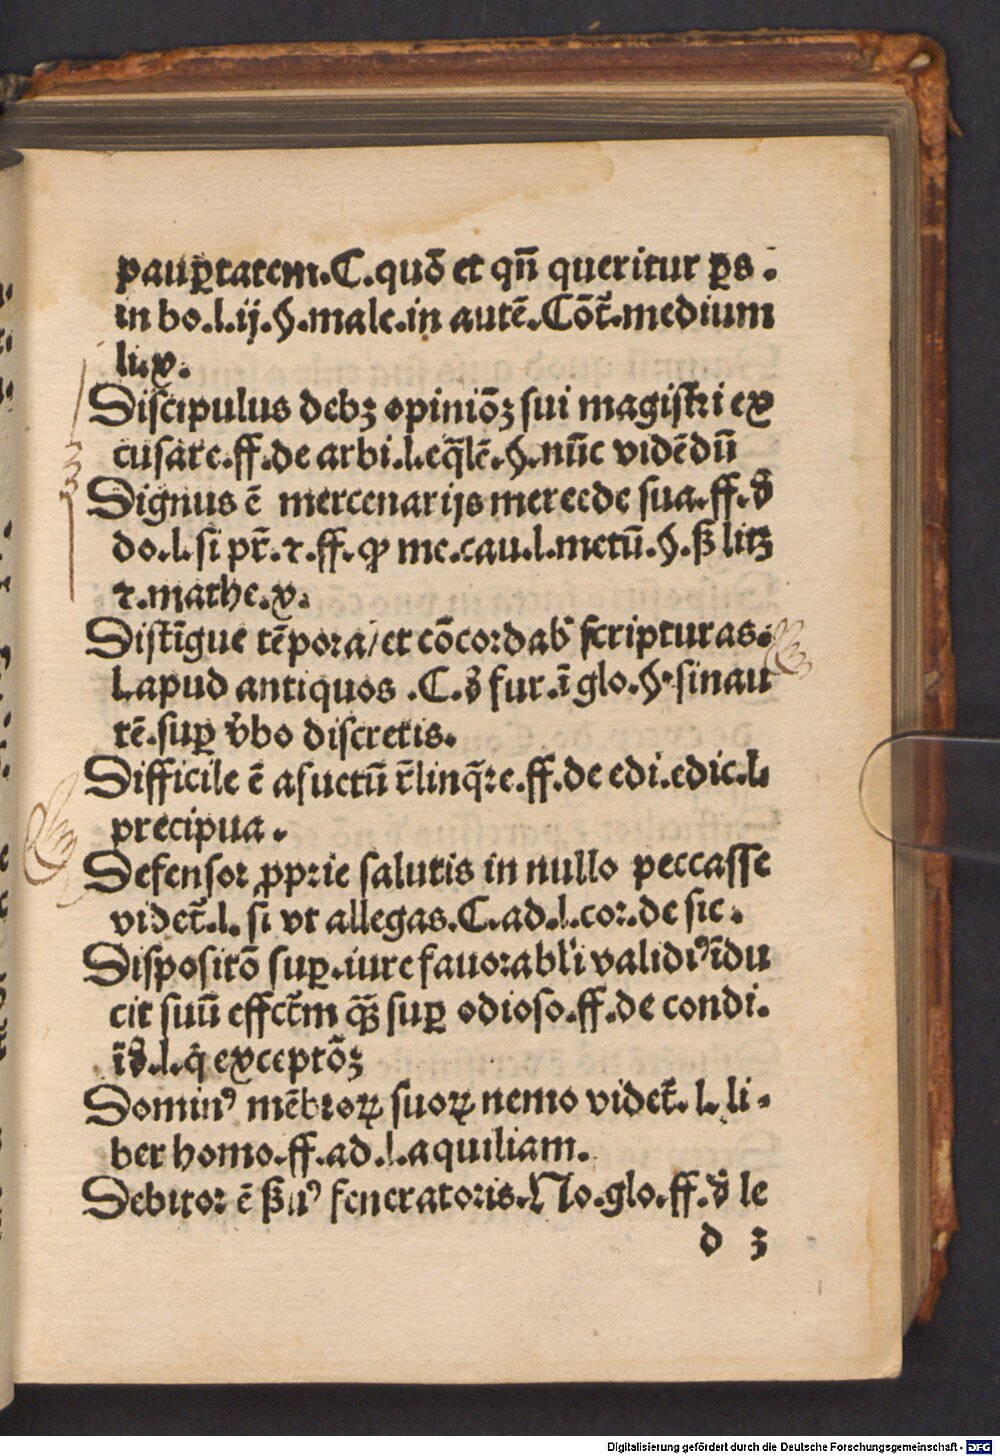 paup̱tatem.C.quō et qn̄ queritur p̱s.
in bo.l.ij.§.male.in autē.Cōt̄.medium
li.x.
Discipulus debꝫ opiniōꝫ sui magistri ex
cusare.ff.de arbi.l.eq̄lē.§.nūc vidēdū
Dignus ē mercenarijs mercede sua.ff.đ
do.l.si pr̄.⁊.ff.ꝓ me.cau.l.metū.§.ß litꝫ
⁊.mathe.x.
Distīgue tēpora/et cōcordabꝰ scripturas.
l.apud antiquos.C.đ fur.ī glo.§.sinau
tē.suꝑ v̓bo discretis.
Difficile ē asuetū r̄linq̄re.ff.de edi.edic.l.
precipua.
Defensor ꝓprie salutis in nullo peccasse
videt̄.l.si vt allegas.C.ad.l.cor.de sic.
Dispositō suꝑ.iure fauorabli validiꝰ īdu
cit suū effctm̄ qꝫ̄ suꝑ odioso.ff.de condi.
īđ.l.q̇ exceptōꝫ
Dominꝰ mēbroꝝ suoꝝ nemo videt̄.l.li-
ber homo.ff.ad.l.aquiliam.
Debitor ē ßuꝰ feneratoris.No.glo.ff.đ le
d 3
Digitalisierung gefördert durch die Deutsche Forschungsgemeinschaft - DFG